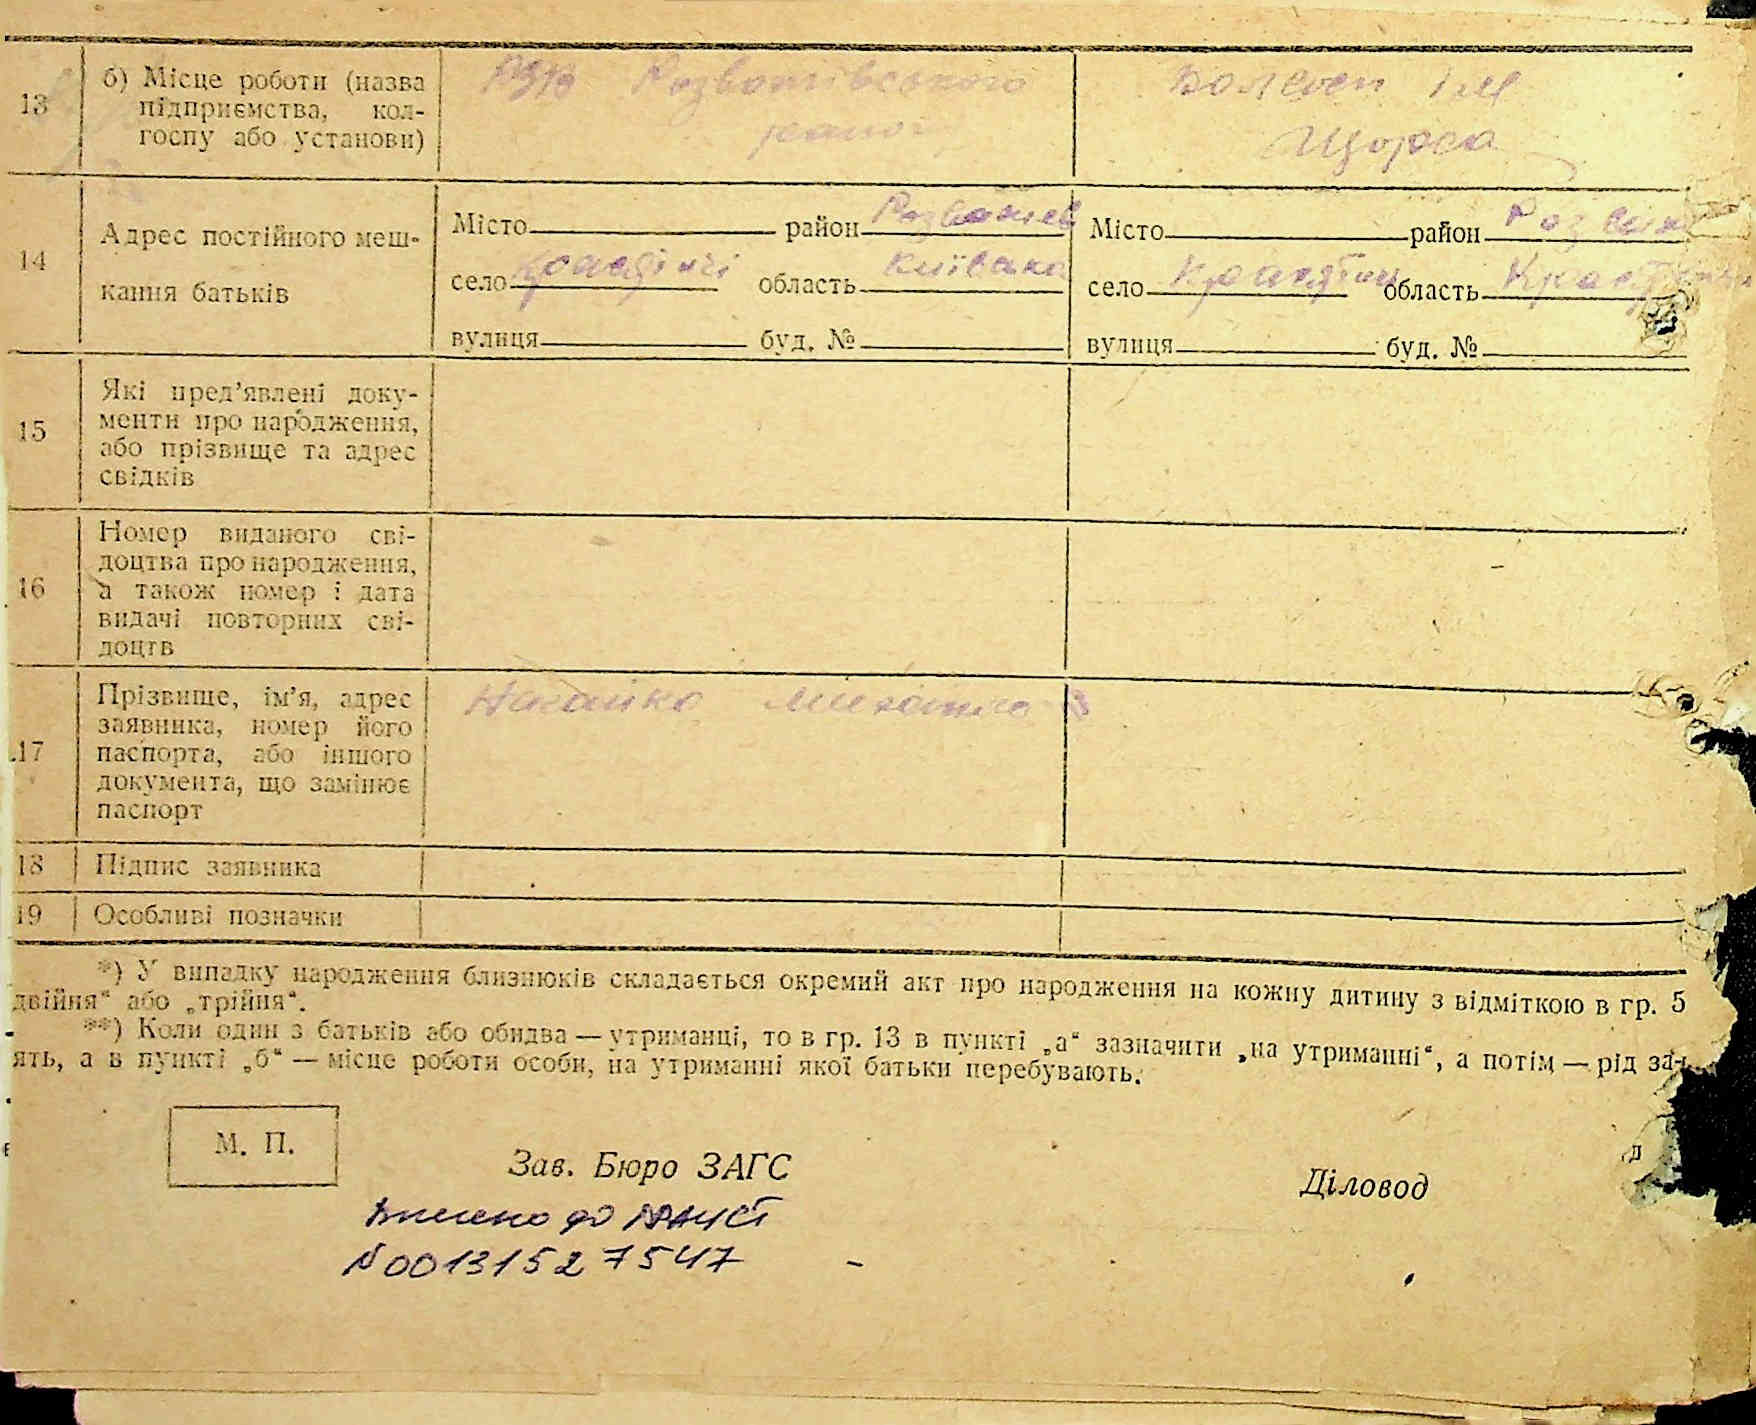 13
б) Місце роботи (назва
підприємства, кол-
госпу або установи)
Розватівського
Колгосп ім
Щорса
14
Адрес постійного меш-
кання батьків
Місто район Розважів
село область Київська
вулиця буд. №
Місто район Розваж
село область
вулиця буд. №
15
Які пред’явлені доку-
менти про народження,
або прізвище та адрес
свідків
16
Номер виданого сві-
доцтва про народження,
а також номер і дата
видачі повторних сві-
доцтв
17
Прізвище, ім’я, адрес
заявника, номер його
паспорта, або іншого
документа, що замінює
паспорт
Нагайко
18 Підпис заявника
19 Особливі позначки
*) У випадку народження близнюків складається окремий акт про народження на кожну дитину з відміткою в гр. 5
двійня“ або „трійня“.
**) Коли один з батьків або обидва — утриманці, то в гр. 13 в пункті „а“ зазначити „на утриманні“, а потім — рід за-
ять, а в пункті „б“ — місце роботи особи, на утриманні якої батьки перебувають.
М. П.
Зав. Бюро ЗАГС
Діловод
Внесено до ДРАЦСГ
N00131527547